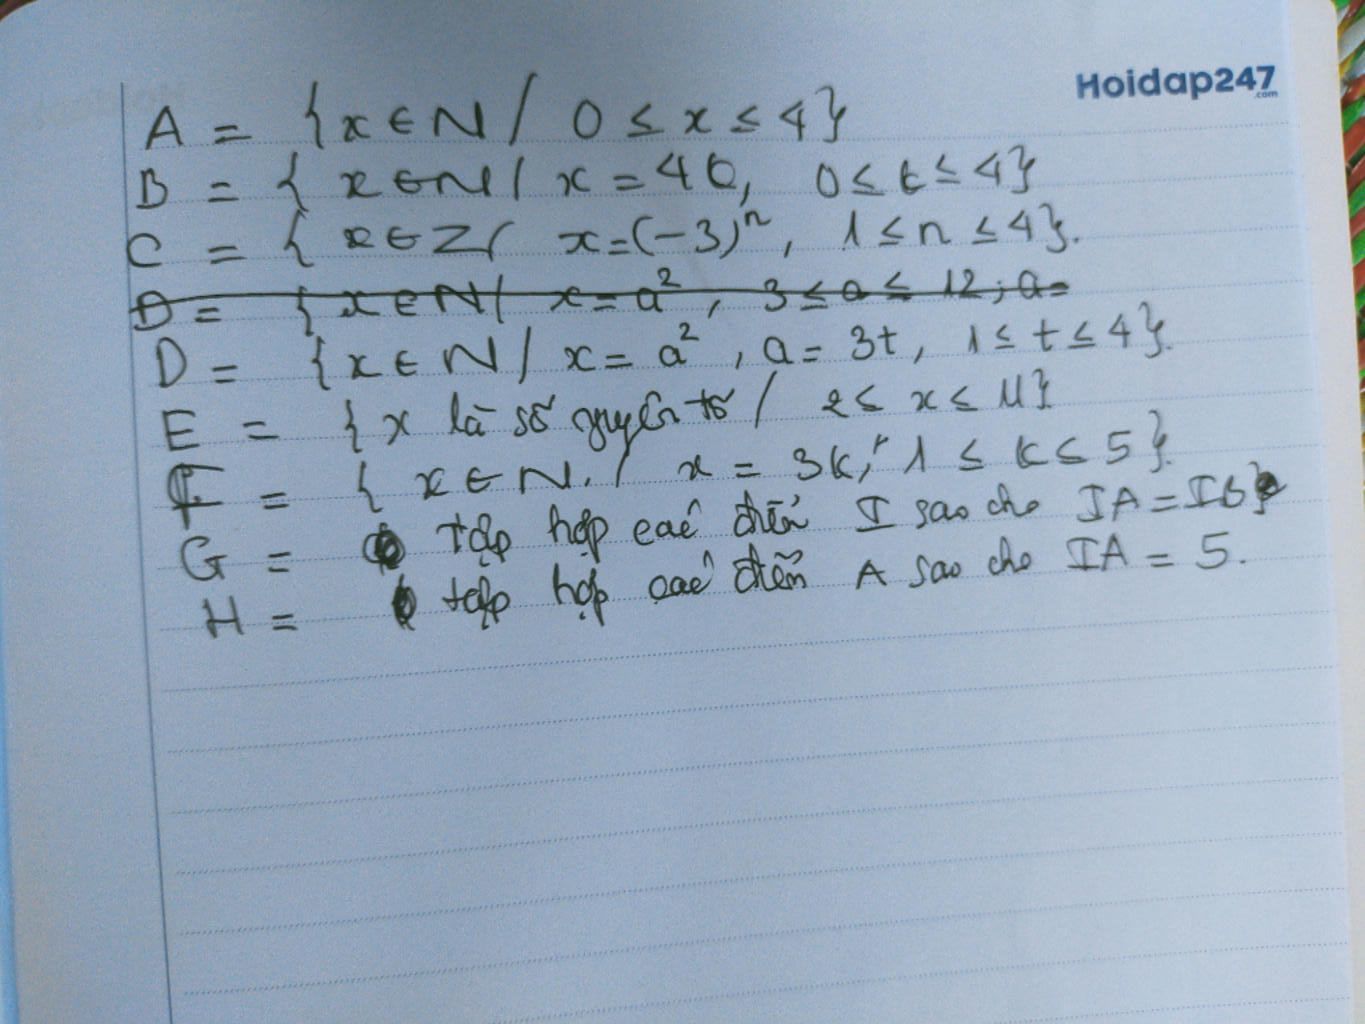 Hoidap247
.com
A = {x ∈ N / 0 ≤ x ≤ 4}
B = { x ∈ N / x = 4t, 0 ≤ t ≤ 4}
C = { x ∈ Z / x = (-3)ⁿ, 1 ≤ n ≤ 4}.
D = { x ∈ N / x = a², 3 ≤ a ≤ 12; a =
D = {x ∈ N / x = a², a = 3t, 1 ≤ t ≤ 4}.
E = {x là số nguyên tố / 2 ≤ x ≤ 11}
F = { x ∈ N. / x = 3k, 1 ≤ k ≤ 5}.
G = tập hợp các điểm I sao cho IA = IB
H = tập hợp các điểm A sao cho IA = 5.